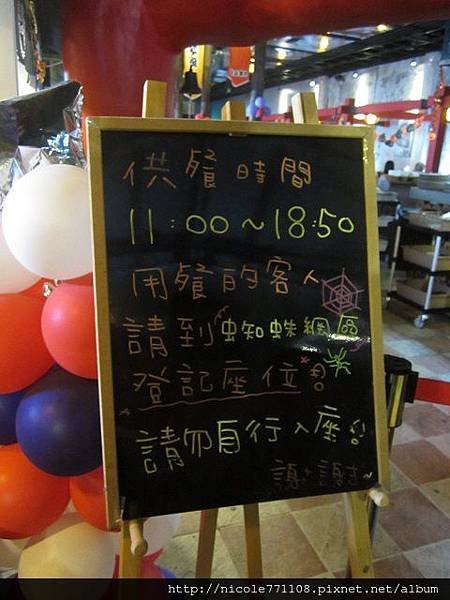 供餐時間
11:00~18:50
用餐的客人
請到蜘蛛網區
登記座位!
請勿自行入座!
謝謝~
http://nicole771108.pixnet.net/album